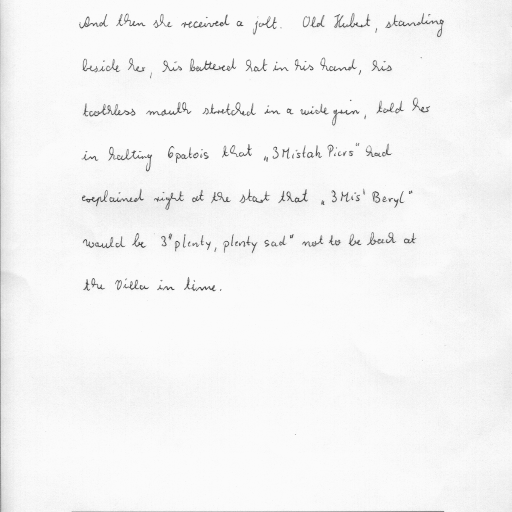 And then she received a jolt. Old Hubert, standing
beside her, his battered hat in his hand, his
toothless mouth stretched in a wide grin, told her
in halting 6patois that „3Mistah Piers" had
explained right at the start that „3Mis' Beryl"
would be 3"plenty, plenty sad" not to be back at
the Villa in time.